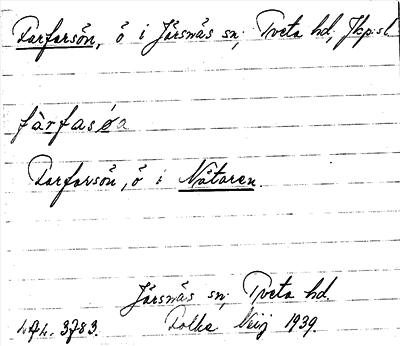 Farfarsön, ö i Järsnäs sn, Tveta hd, Jkp.sl
fàrfasøa
Farfarsön, ö i Nätaren.
Järsnäs sn, Tveta hd.
Folke Neij 1939.